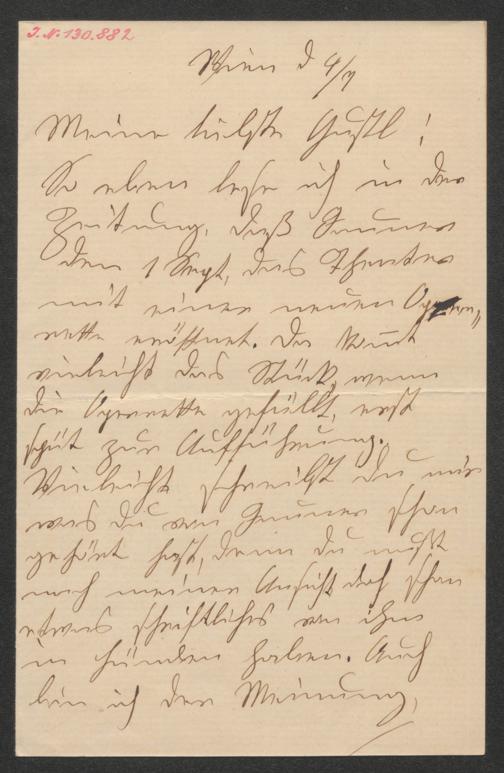 J.N. 130.882
Wien d 4/7
Meine liebste Gustl!
So eben lese ich in der
Zeitung, daß
den 1 Sept, das Theater
mit einer neuen
rette eröffnet. Da kommt
vieleicht das Stück, wenn
die Operette gefällt, erst
spät zur Aufführung.
Vieleicht schreibst Du mir
was Du von schon
gehört hast, denn Du mußt
nach meiner Ansicht doch schon
etwas schriftliches von ihm
in händen haben. Auch
bin ich der Meinung,